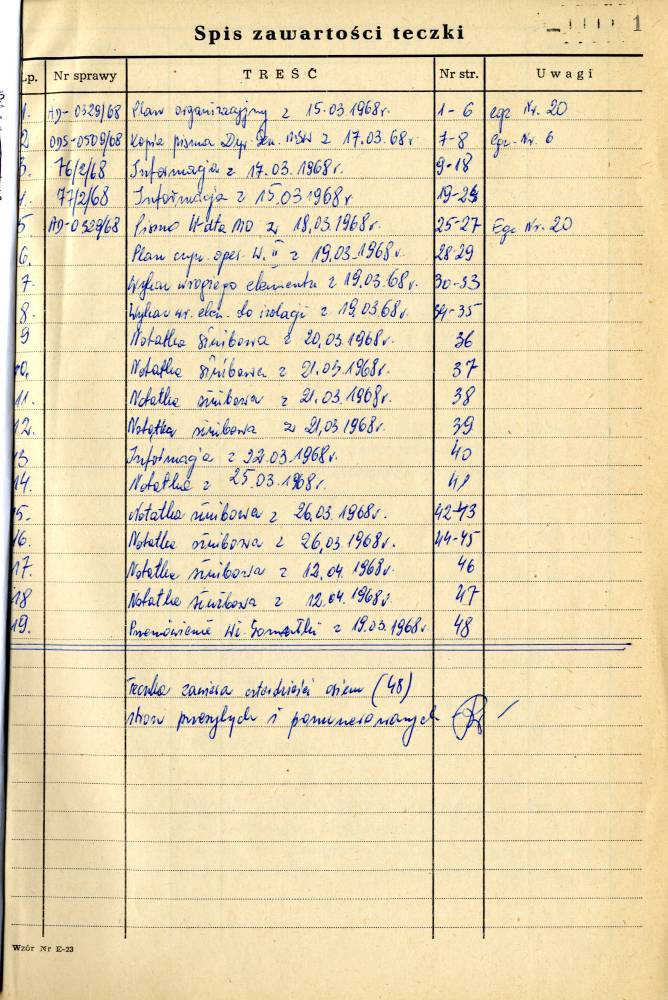 1
Spis zawartości teczki
Lp. Nr sprawy TREŚĆ Nr str. Uwagi
1. AD-0329/68 Plan organizacyjny z 15.03.1968r. 1-6 egz Nr. 20
2 ODS-0509/68 Kopia pisma Dyr. Gen. MSW z 17.03.68r. 7-8 Egz. Nr. 6
3. 76/2/68 Informacja z 17.03.1968r. 9-18
4. 77/2/68 Informacja z 15.03.1968r. 19-24
5. AD-0329/68 Pismo W-dła MO z 18.03.1968r. 25-27 Egz Nr. 20
6. Plan oper. W. II z 19.03.1968r. 28-29
7. Wykaz wrogiego elementu z 19.03.68r. 30-33
8. Wykaz wr. elem. do izolacji z 19.03.68r. 34-35
9 Notatka służbowa z 20.03.1968r. 36
10. Notatka służbowa z 21.03.1968r. 37
11. Notatka służbowa z 21.03.1968r. 38
12. Notatka służbowa z 21.03.1968r. 39
13 Informacja z 22.03.1968r. 40
14. Notatka z 25.03.1968r. 41
15. Notatka służbowa z 26.03.1968r. 42-43
16. Notatka służbowa z 26.03.1968r. 44-45
17. Notatka służbowa z 12.04.1968r. 46
18 Notatka służbowa z 12.04.1968r. 47
19. Przemówienie Wł. Gomułki z 19.03.1968r. 48
Teczka zawiera czterdzieści osiem (48)
stron przeszytych i ponumerowanych
Wzór Nr E-23